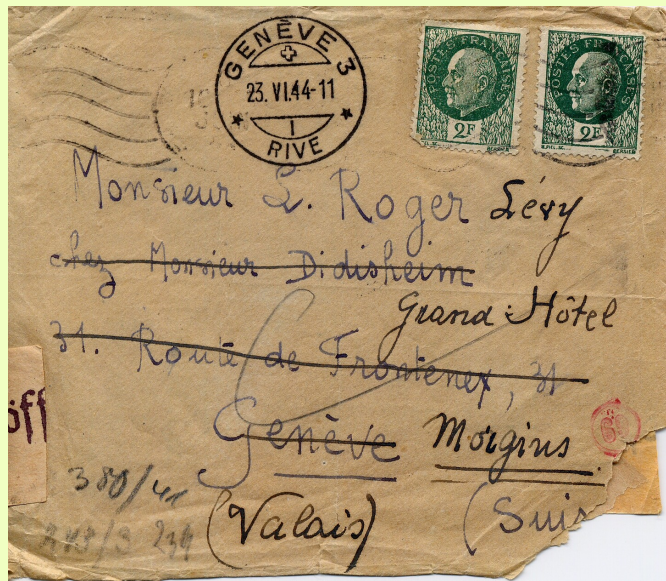 GENÈVE 3
23. VI.44-11
1
RIVE
POSTES FRANÇAISES
2F
POSTES FRANÇAISES
2F
Monsieur L. Roger Lévy
chez Monsieur Didisheim
Grand Hôtel
31. Route de Frontenex, 31
Genève Morgins
(Valais) (Suis
öff
380/41